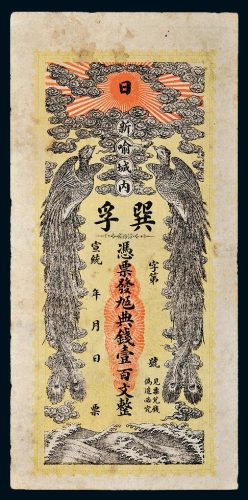 日
新喻城内
巽孚
字第 號
見票兌錢
偽造必究
憑票發典錢壹百文整
宣統 年 月 日 票